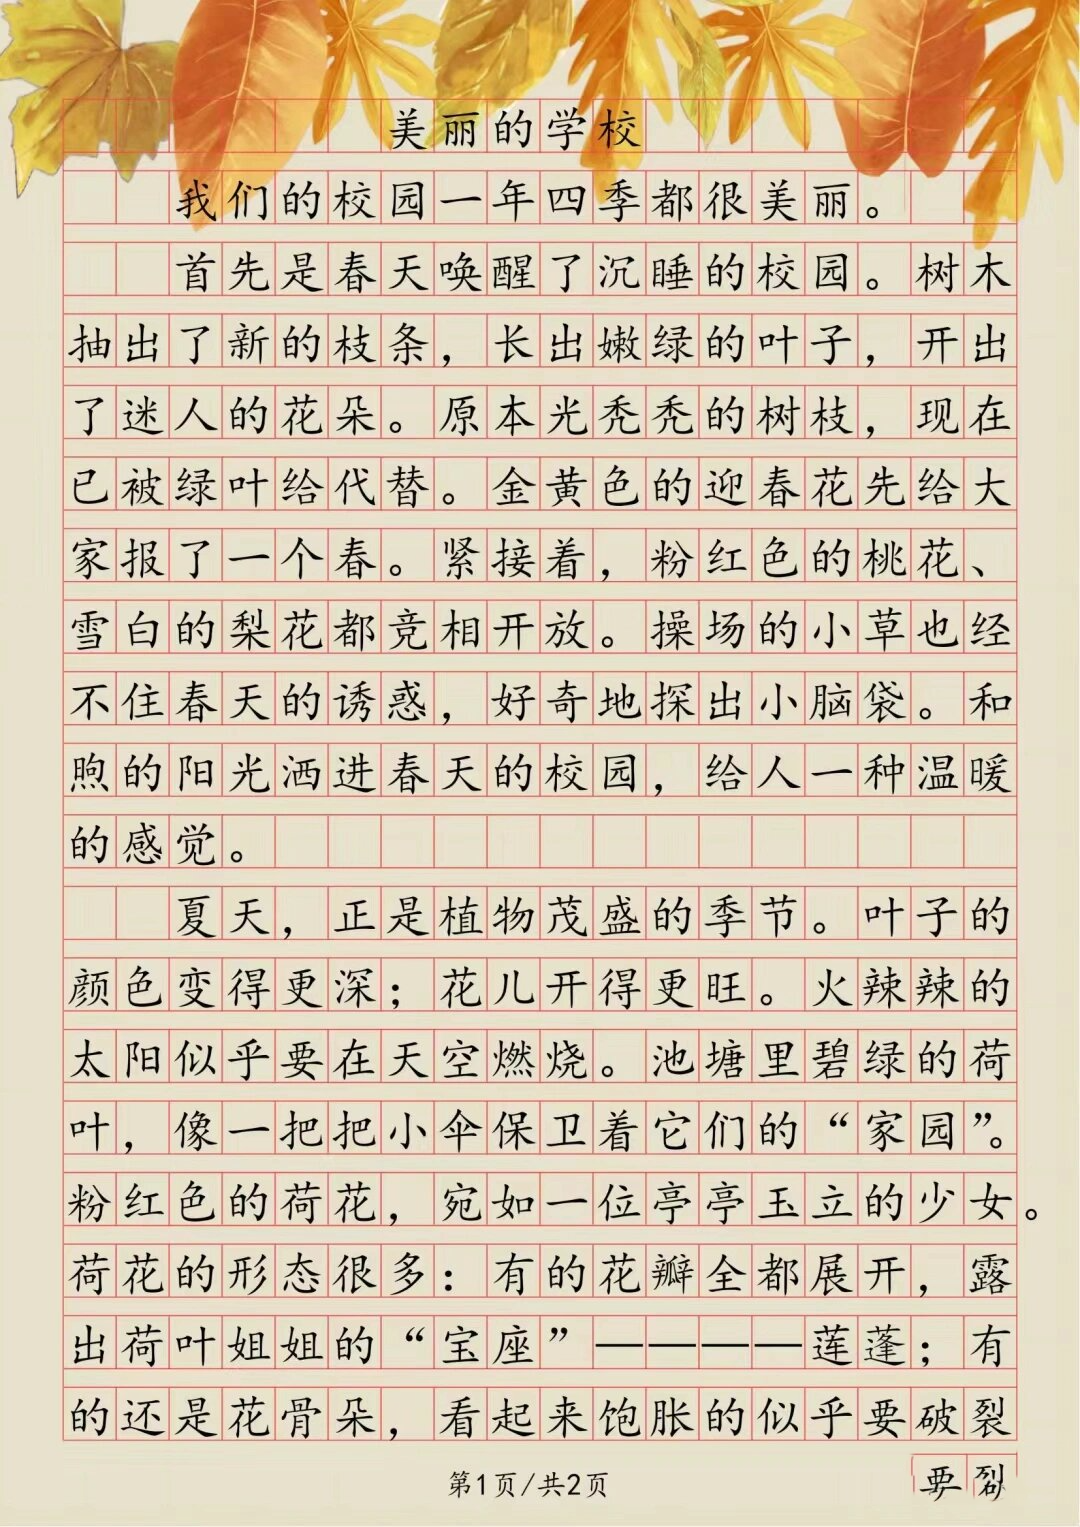 美丽的学校
我们的校园一年四季都很美丽。
首先是春天唤醒了沉睡的校园。树木
抽出了新的枝条，长出嫩绿的叶子，开出
了迷人的花朵。原本光秃秃的树枝，现在
已被绿叶给代替。金黄色的迎春花先给大
家报了一个春。紧接着，粉红色的桃花、
雪白的梨花都竞相开放。操场的小草也经
不住春天的诱惑，好奇地探出小脑袋。和
煦的阳光洒进春天的校园，给人一种温暖
的感觉。
夏天，正是植物茂盛的季节。叶子的
颜色变得更深；花儿开得更旺。火辣辣的
太阳似乎要在天空燃烧。池塘里碧绿的荷
叶，像一把把小伞保卫着它们的“家园”。
粉红色的荷花，宛如一位亭亭玉立的少女。
荷花的形态很多：有的花瓣全都展开，露
出荷叶姐姐的“宝座”————莲蓬；有
的还是花骨朵，看起来饱胀的似乎要破裂
第1页/共2页